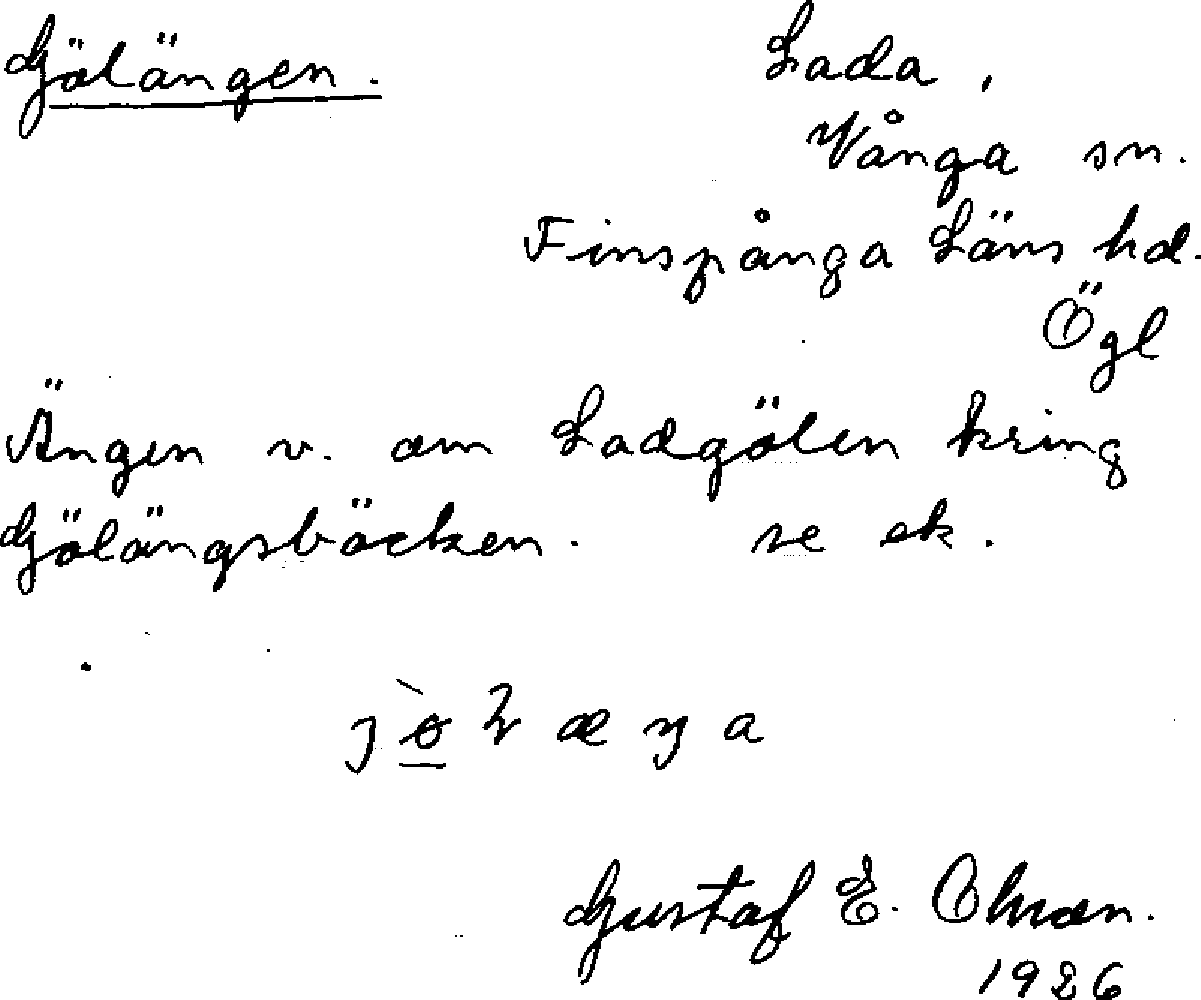 Gölängen. Lada,
Vånga sn.
Finspånga Läns hd.
Ögl
Ängen v. om Ladgölen kring
Gölängsbäcken. se ek.
Gustaf E. Ohson.
1926